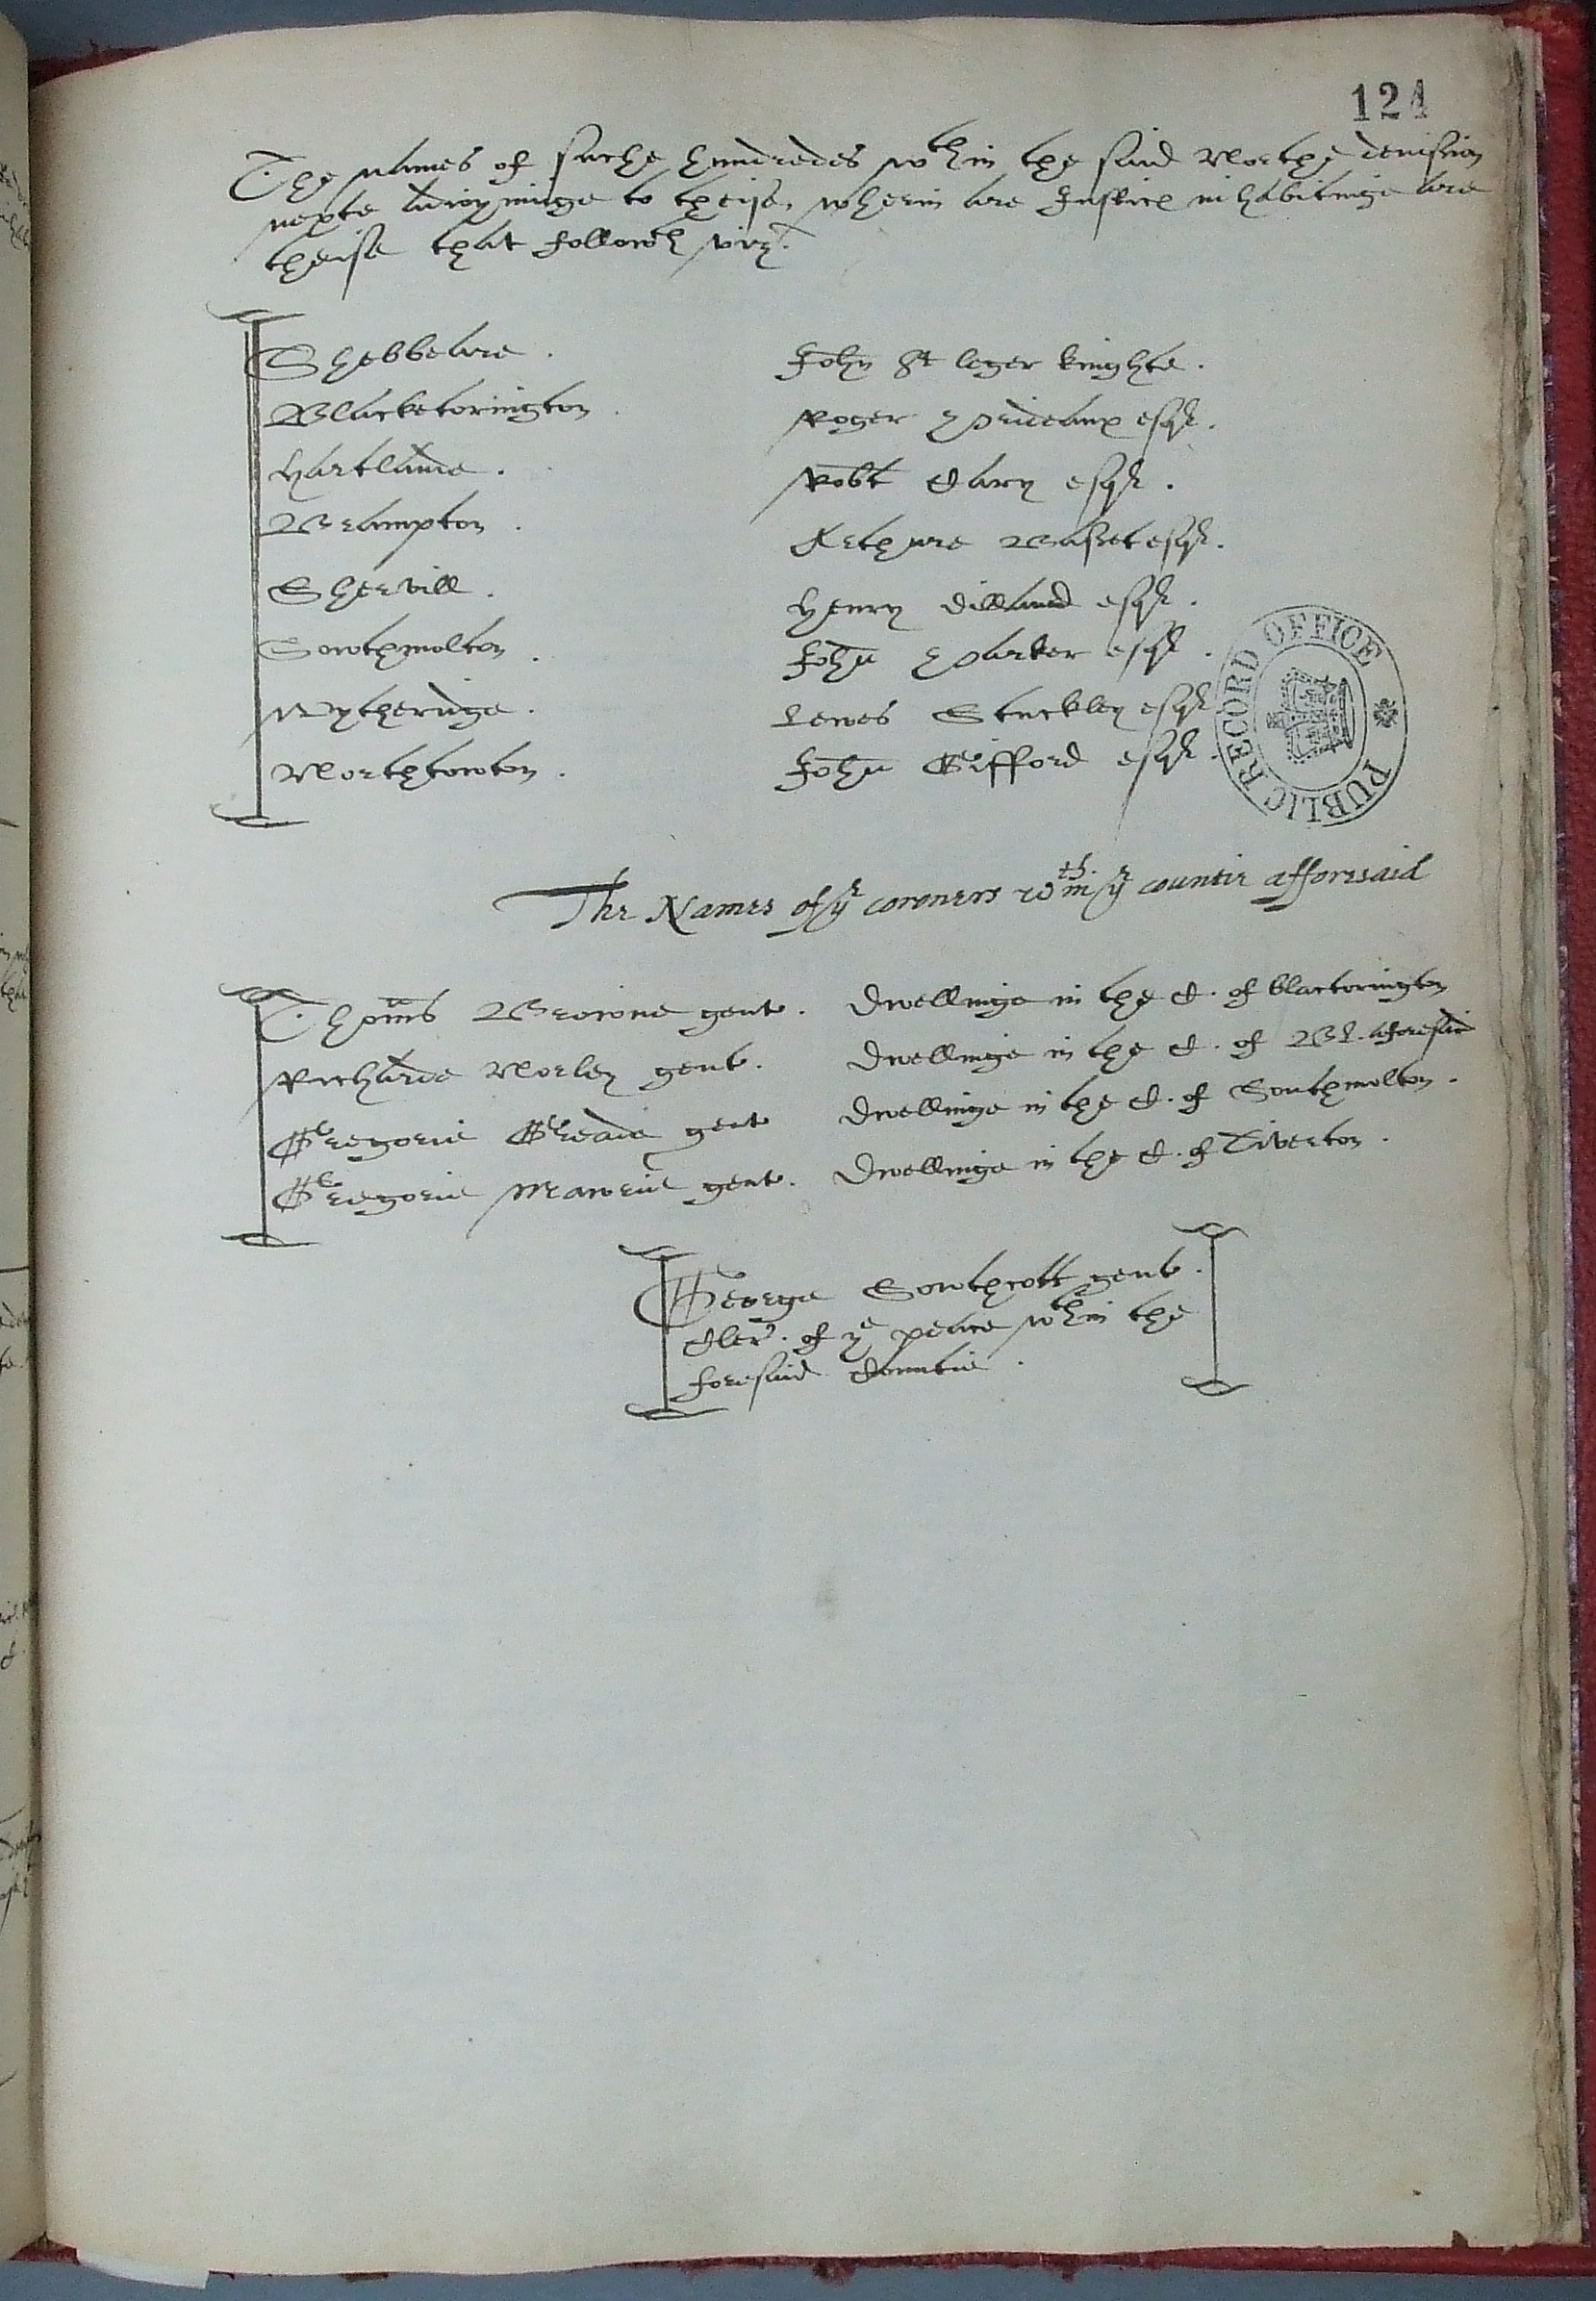 124
The names of suche hundredes wth in the said Northe devision
nexte adioyninge to theise, wherin are Justices inhabitinge are
theise that followth viz.
Shebbeare . John St leger knighte .
Blacketorington . Roger Prideaux esqr .
Hartlande . Robt Cary esqr .
Brampton . Arthure Basset esqr .
Shervill . Henry Dilland esqr .
Sowthmolton . John Parker esqr .
Wytheridge . Lewes Stuckley esqr
Northtowton . John Gifford esqr .
PUBLIC RECORD OFFICE
The Names of ye coroners wth in ye countie afforesaid
Thoms Browne gent . Dwellinge in the C. of blactorington
Richarde Morley gent . Dwellinge in the C. of Bl. aforesaid
Gregorie Gread gent Dwellinge in the C. of Southmolton .
Gregorie gent . Dwellinge in the C. of Tiverton .
George Sowthcott gent .
Cler . of ye peace wth in the
foresaid Countie .